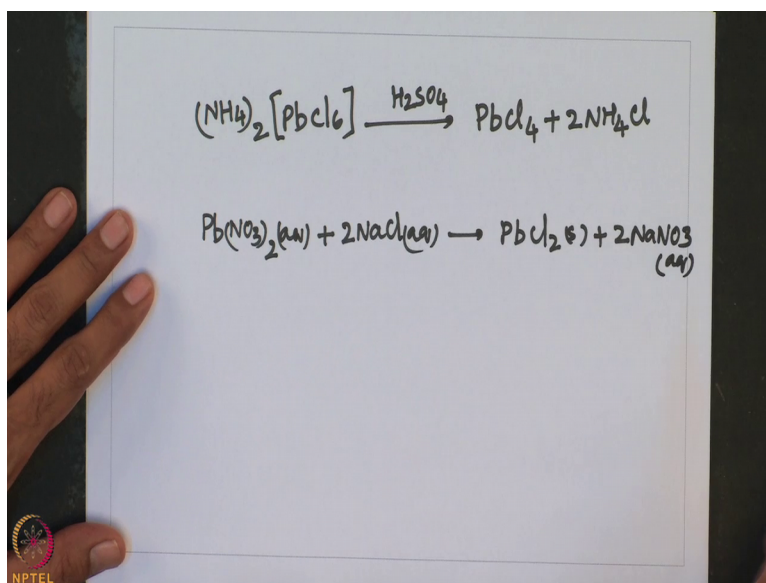 (NH4)2[PbCl6] H2SO4→ PbCl4 + 2NH4Cl
Pb(NO3)2(aq) + 2NaCl(aq) → PbCl2(s) + 2NaNO3
(aq)
NPTEL